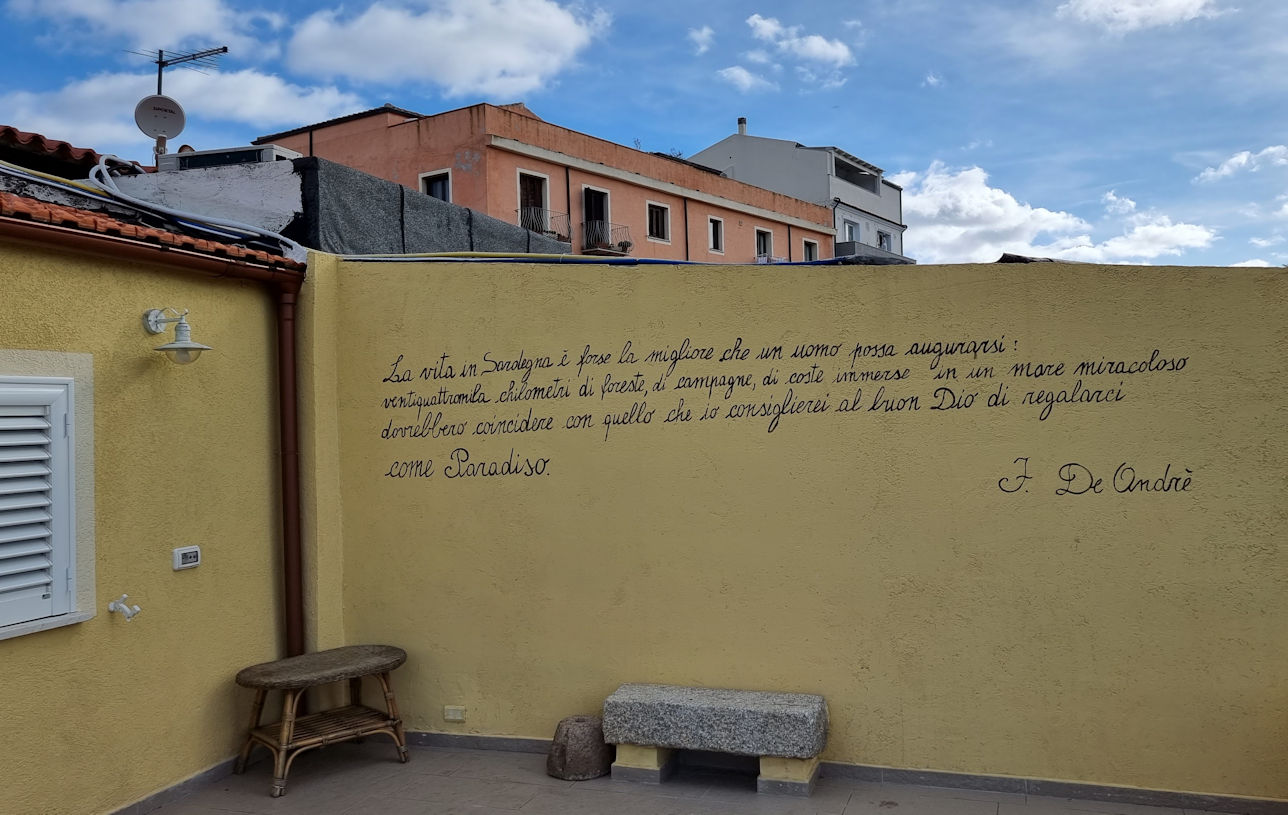 La vita in Sardegna è forse la migliore che un uomo possa augurarsi:
ventiquattromila chilometri di foreste, di campagne, di coste immerse in un mare miracoloso
dovrebbero coincidere con quello che io consiglierei al buon Dio di regalarci
come Paradiso.
F. De Andrè